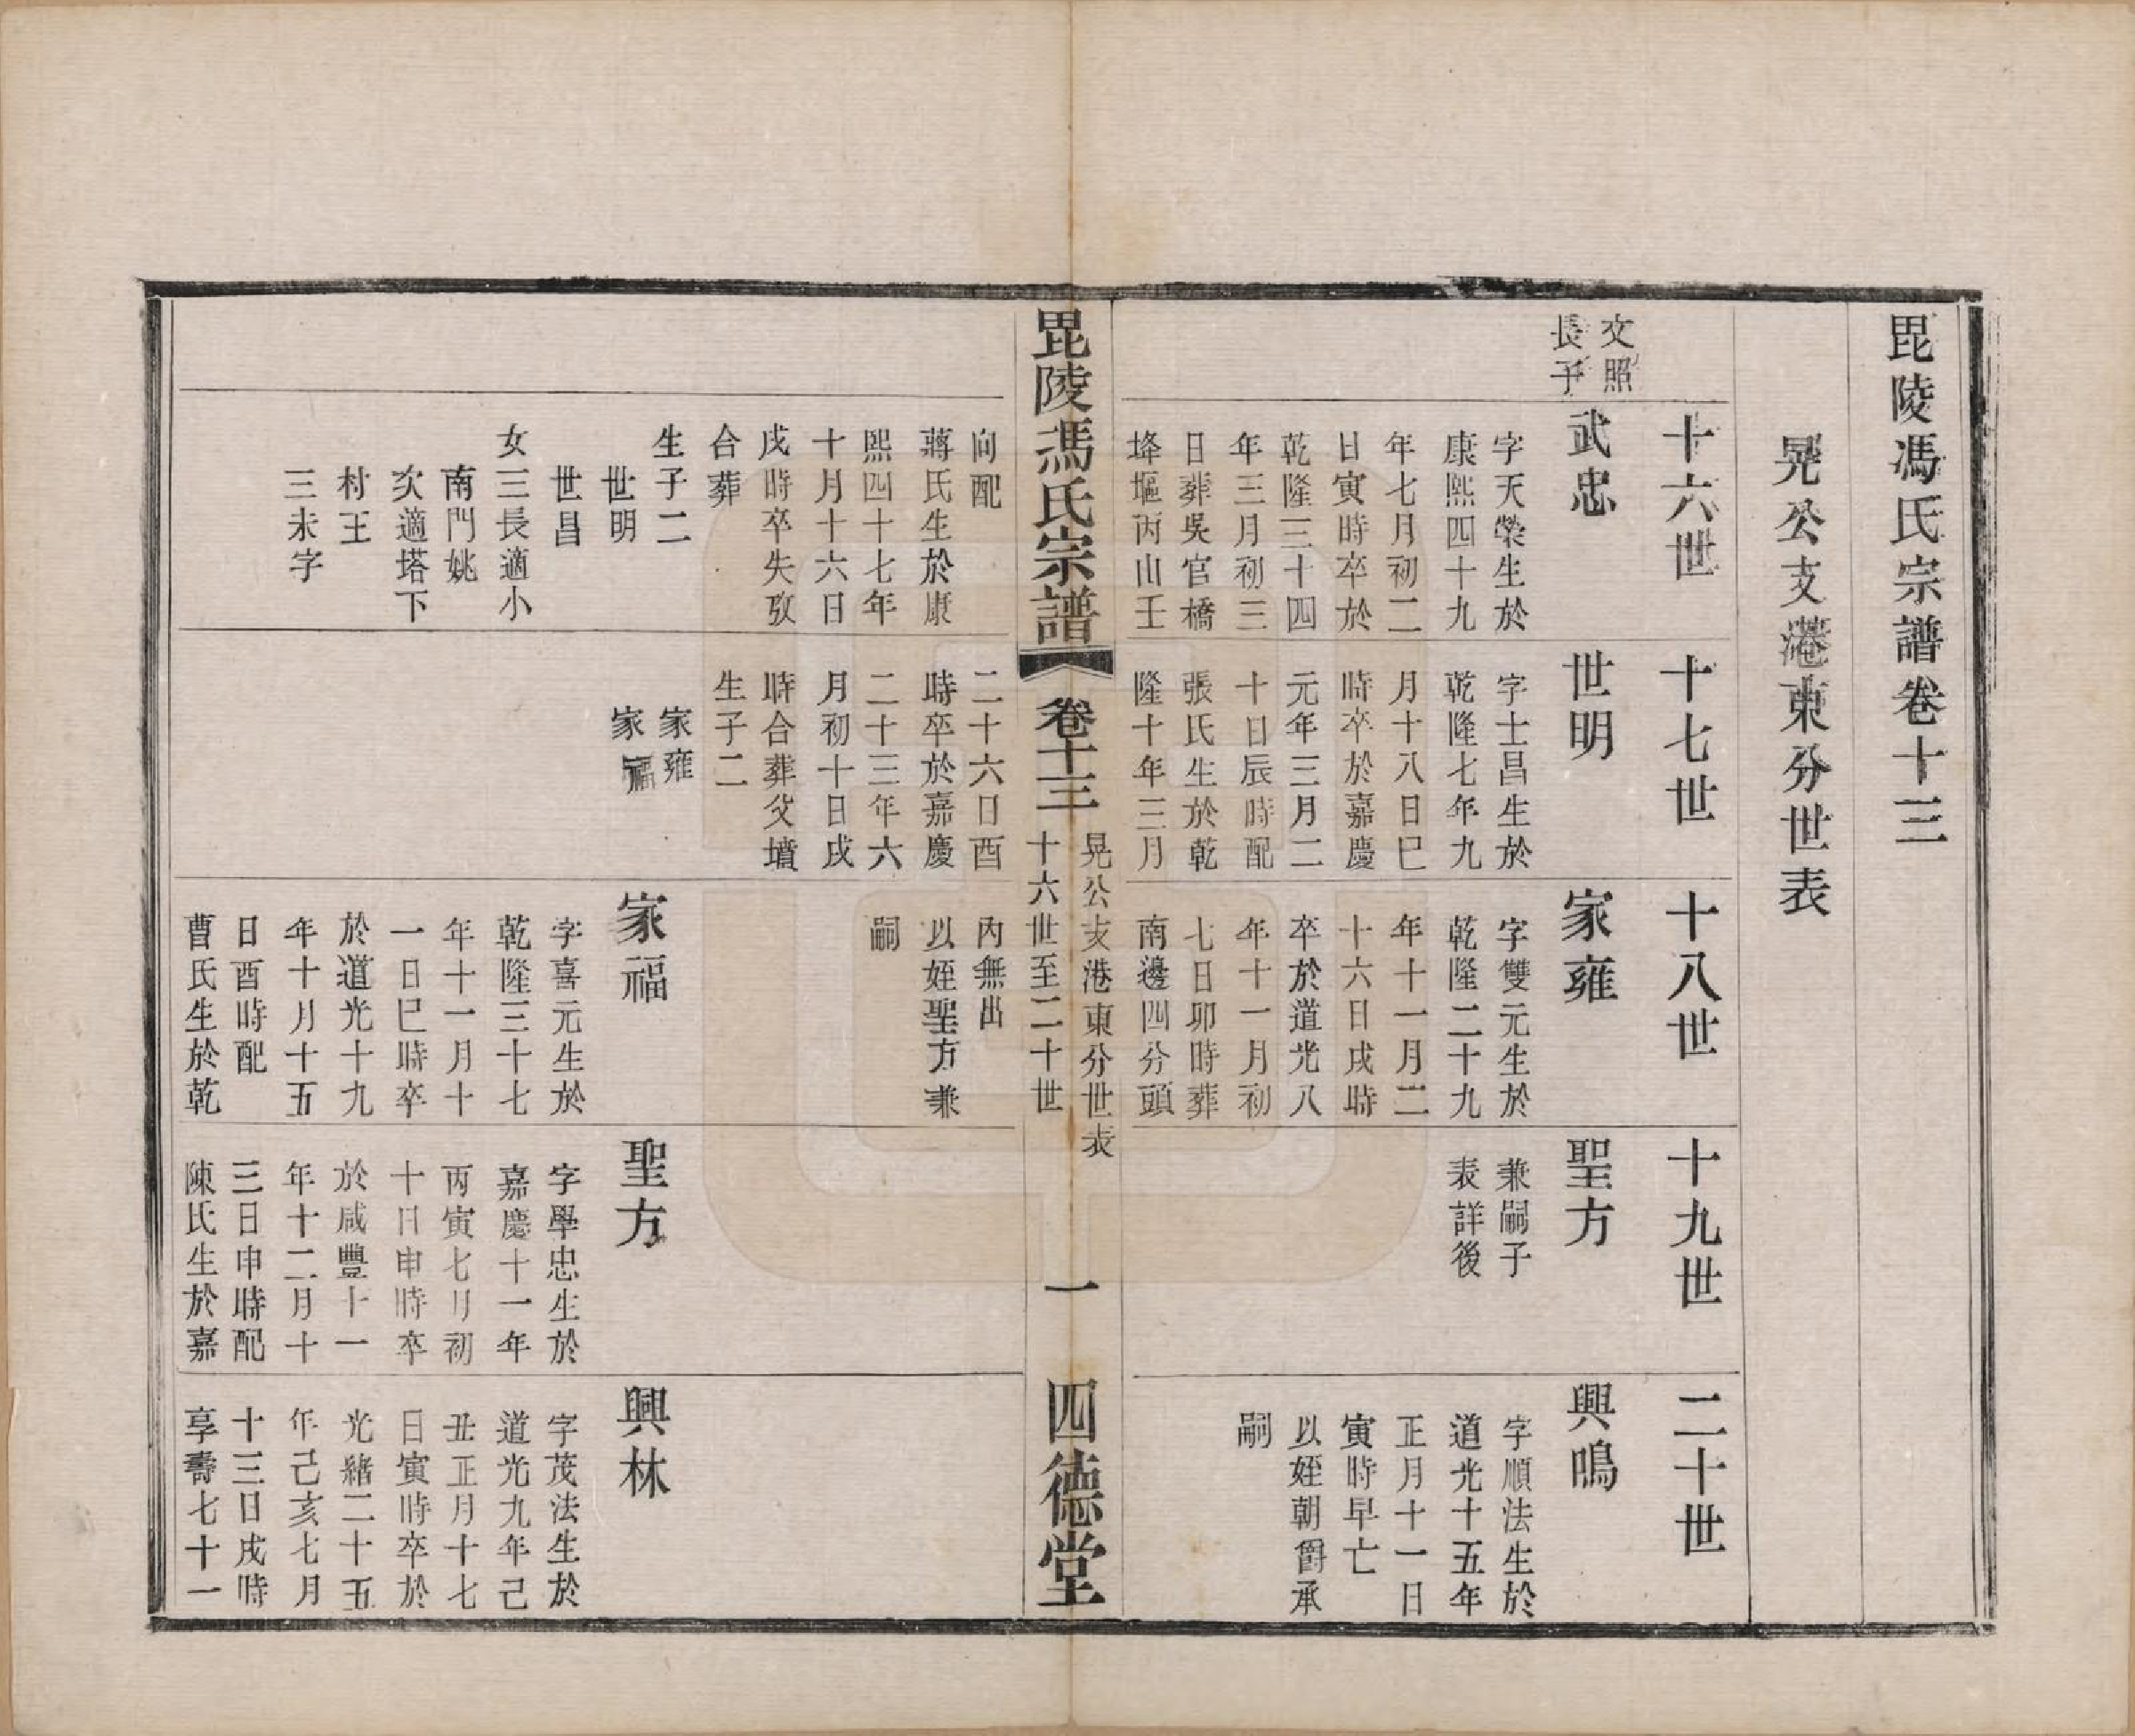 毘陵馮氏宗譜卷十三
晃公支港東分世表
十六世
十七世
十八世
十九世
二十世
文照
長子
武忠
字天榮生於
康熙四十九
年七月初二
日寅時卒於
乾隆三十四
年三月初三
日葬吳官橋
埄堰丙山壬
向配
蔣氏生於康
熙四十七年
十月十六日
戌時卒失攷
合葬
生子二
世明
世昌
女三長適小
南門姚
次適塔下
村王
三未字
世明
字士昌生於
乾隆七年九
月十八日巳
時卒於嘉慶
元年三月二
十日辰時配
張氏生於乾
隆十年三月
二十六日酉
時卒於嘉慶
二十三年六
月初十日戌
時合葬父墳
生子二
家雍
家福
家雍
字雙元生於
乾隆二十九
年十一月二
十六日戌時
卒於道光八
年十一月初
七日卯時葬
南邊四分頭
內無出
以姪聖方兼
嗣
家福
字喜元生於
乾隆三十七
年十一月十
一日巳時卒
於道光十九
年十月十五
日酉時配
曹氏生於乾
聖方
兼嗣子
表詳後
聖方
字學忠生於
嘉慶十一年
丙寅七月初
十日申時卒
於咸豐十一
年十二月十
三日申時配
陳氏生於嘉
興鳴
字順法生於
道光十五年
正月十一日
寅時早亡
以姪朝爵承
嗣
興林
字茂法生於
道光九年己
丑正月十七
日寅時卒於
光緒二十五
年己亥七月
十三日戌時
享壽七十一
毘陵馮氏宗譜
卷十三
晃公支港東分世表
十六世至二十世
一
四德堂